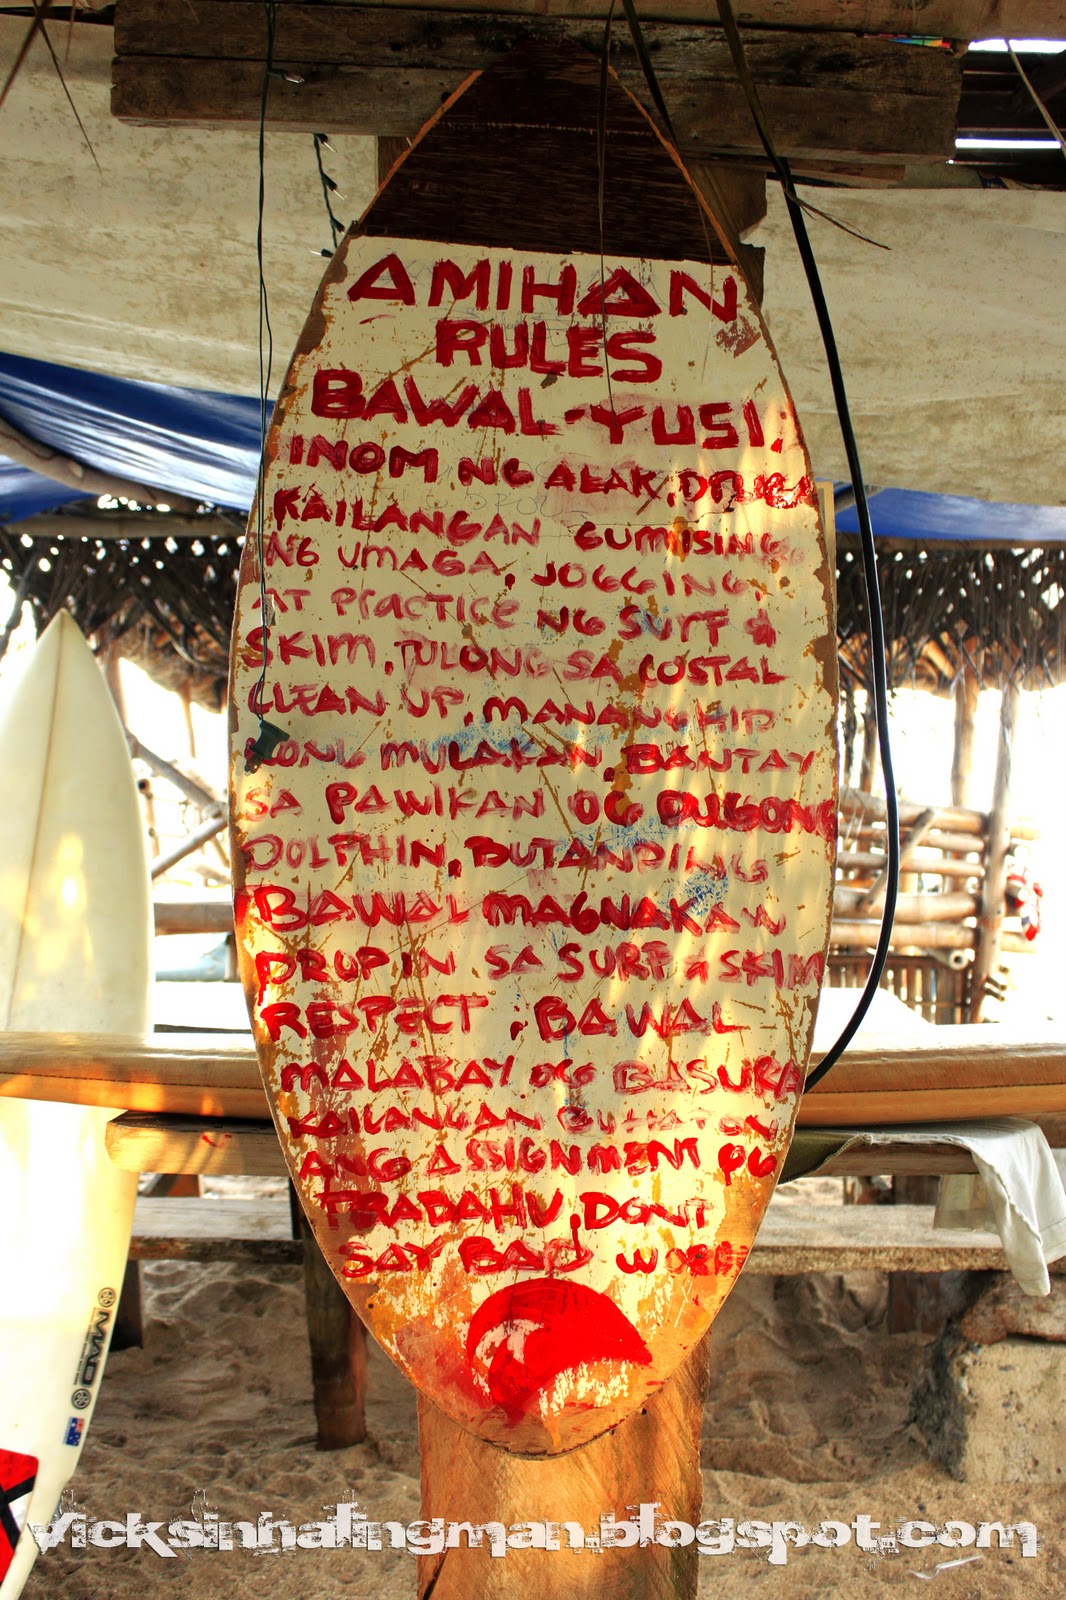 AMIHAN
RULES
BAWAL-YUSI:
INOM NG ALAK, DRUGS
KAILANGAN GUMISING
NG UMAGA, JOGGING,
AT PRACTICE NG SURF &
SKIM, TULONG SA COSTAL
CLEAN UP, MANANGHID
KONG MULAKAW, BANTAY
SA PAWIKAN OG DUGONG
DOLPHIN, BUTANDING
BAWAL MAGNAKAW
DROP IN SA SURF & SKIM
RESPECT; BAWAL
MALABAY OG BASURA
KAILANGAN BUHATON
ANG ASSIGNMENT OG
TRABAHU, DONT
SAY BAD WORD
MAD
vicksinhalingman.blogspot.com